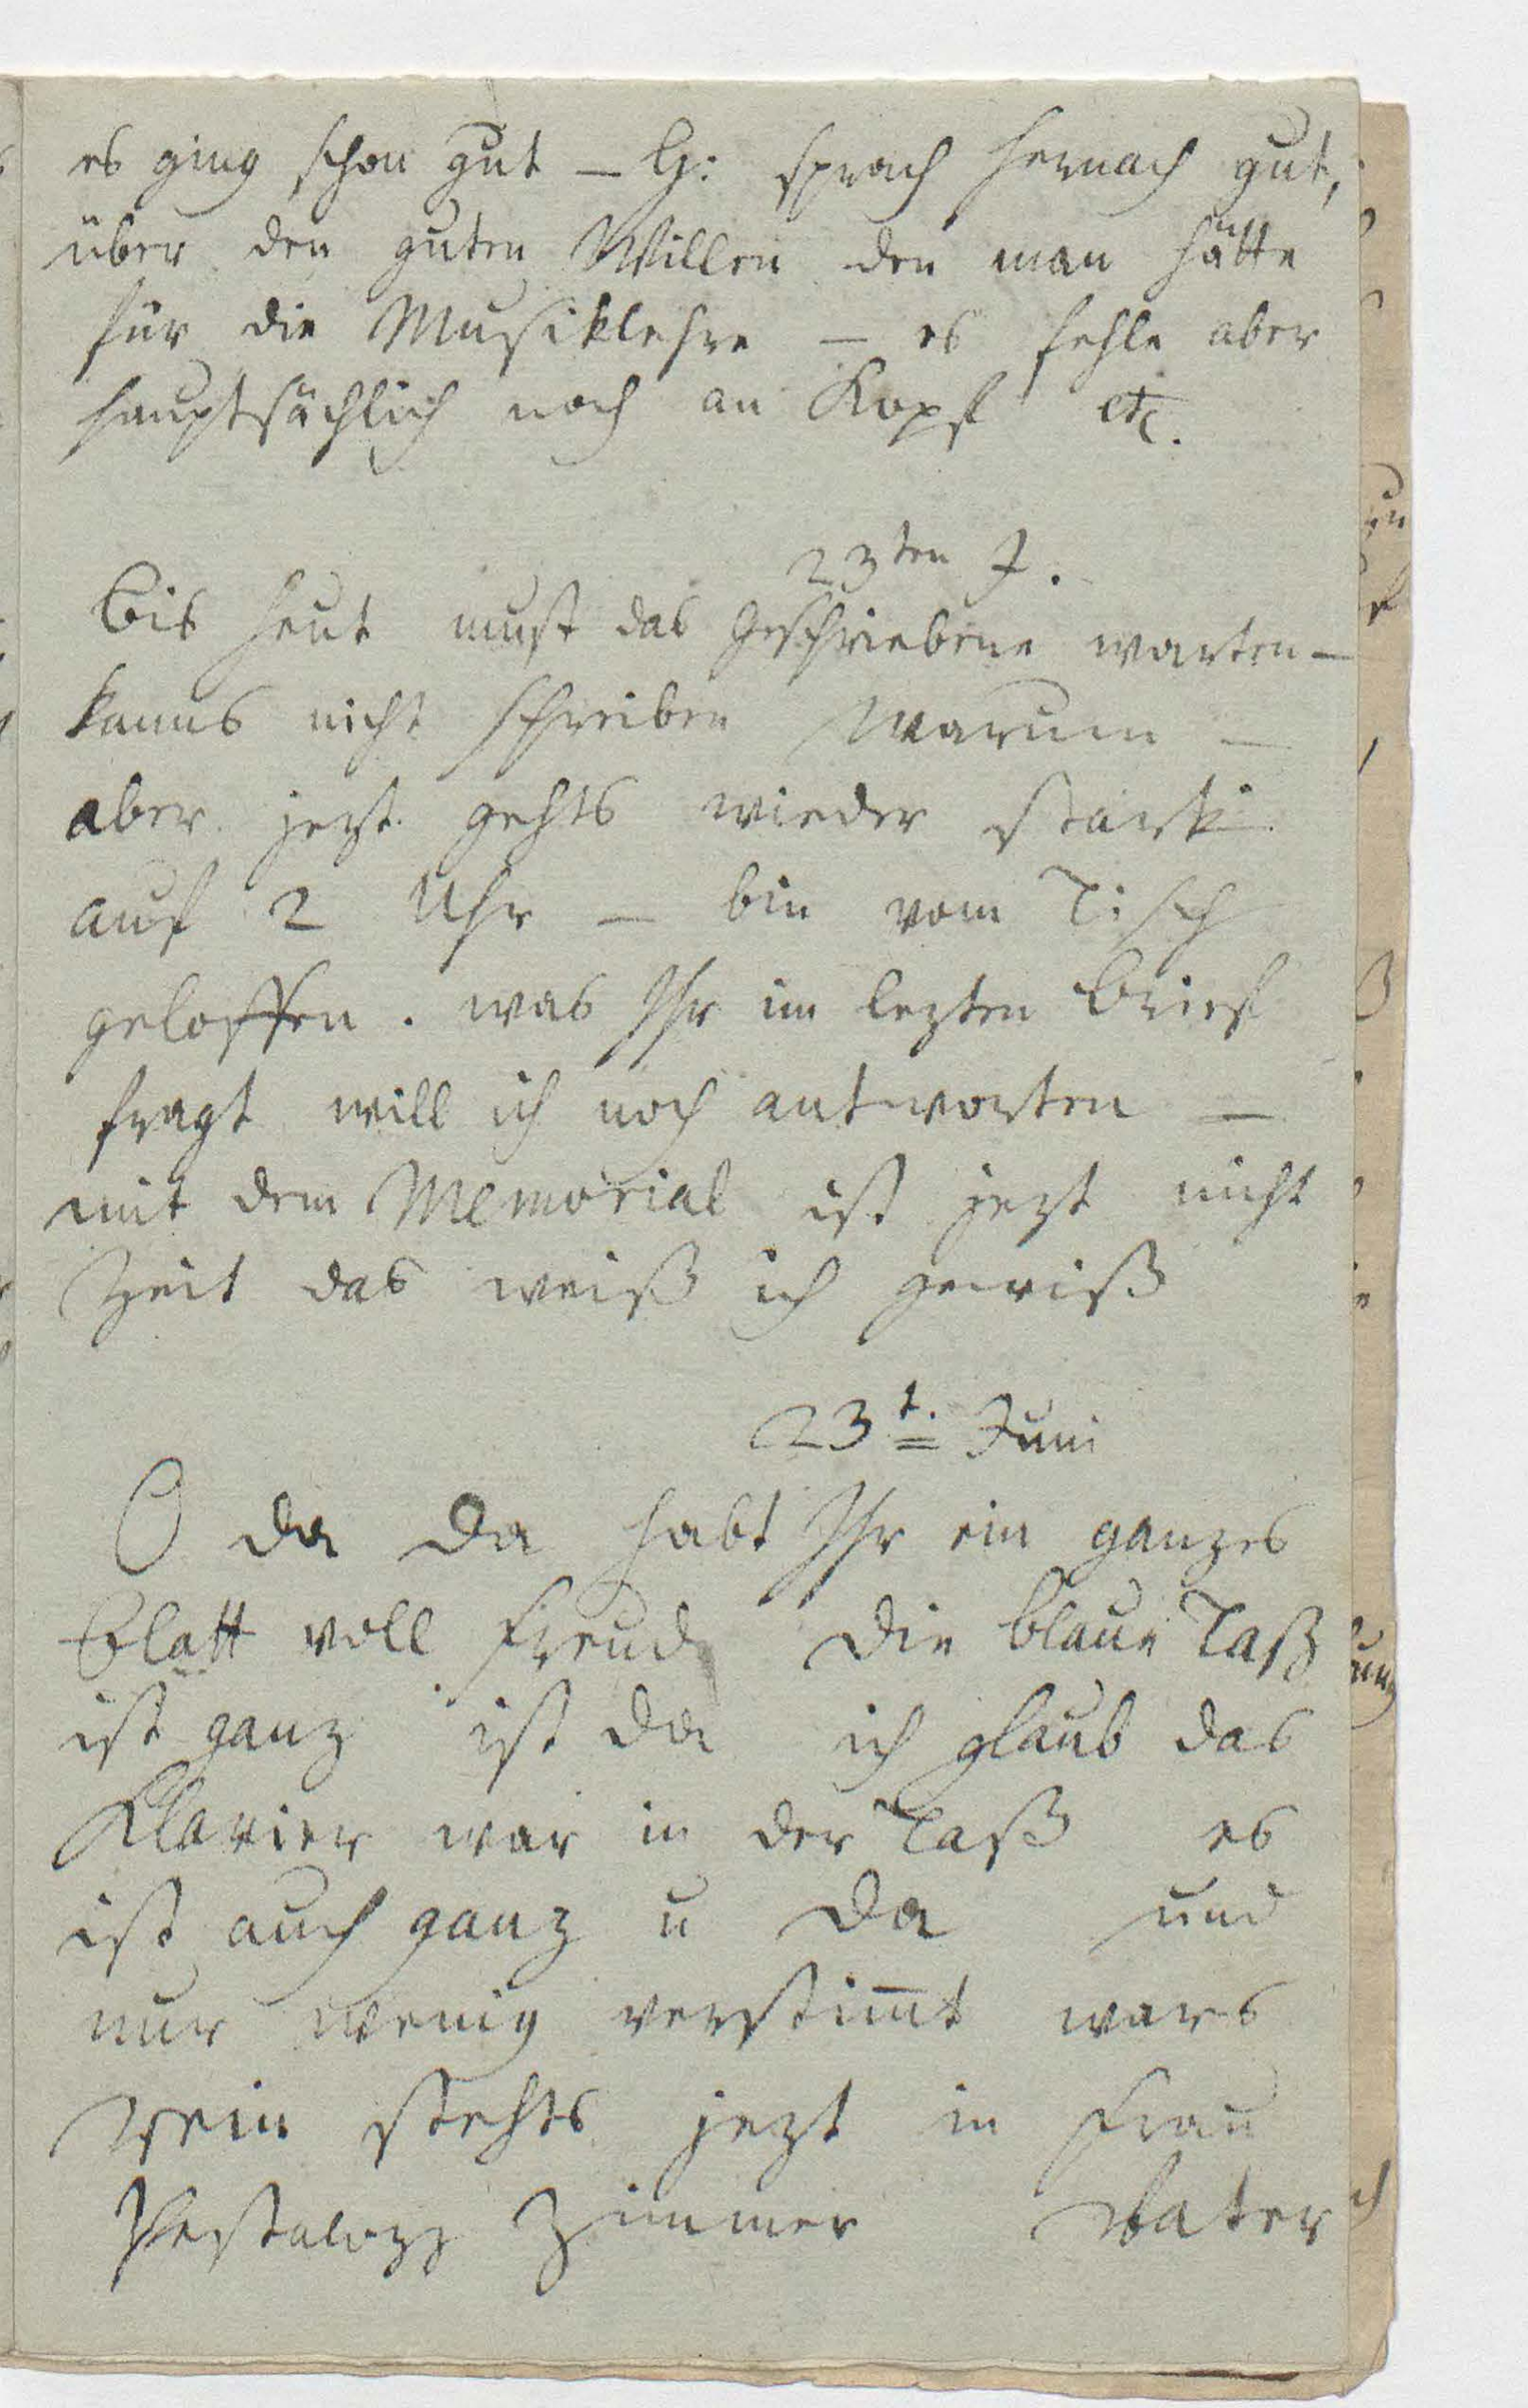 es ging schon gut – G: sprach hernach gut,
über den guten Willen den man hätte
für die Musiklehre – es fehle aber
hauptsächlich noch an Kopf etc.
23ten J.
Bis heut must das Geschriebene warten –
kanns nicht schreiben Warum –
aber jezt gehts wieder stark
auf 2 Uhr – bin vom Tisch
geloffen. was Ihr im lezten Brief
fragt will ich noch antworten –
mit dem Memorial ist jezt nicht
Zeit das weiß ich gewiß
23t. Juni
O da da habt Ihr ein ganzes
Blatt voll Freud die blaue Taß
ist ganz ist da ich glaub das
Klavier war in der Taß es
ist auch ganz u da und
nur wenig verstim̄t wars
stehts jezt in Frau
Pestalozz Zimmer Vater